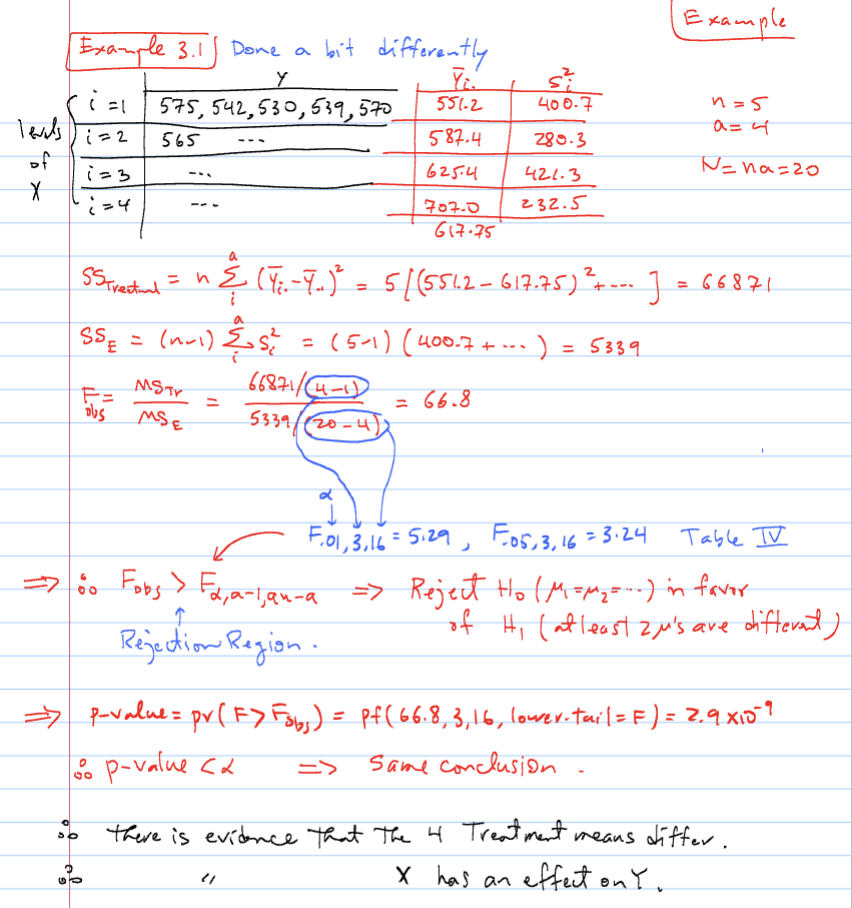 Example
Example 3.1 Done a bit differently
Y Ȳi. Si²
i=1 575, 542, 530, 539, 570 551.2 400.7 n=5
levels i=2 565 --- 587.4 280.3 a=4
of i=3 --- 625.4 421.3 N=na=20
X i=4 --- 707.0 232.5
617.75
SS_Treatment = n Σ_i^a (Ȳi.-Ȳ..)² = 5[(551.2-617.75)²+---] = 66871
SS_E = (n-1) Σ_i^a Si² = (5-1)(400.7+---) = 5339
F_obs = MS_Tr / MS_E = 66871/(4-1) / 5339/(20-4) = 66.8
α
F.01,3,16 = 5.29, F.05,3,16 = 3.24 Table IV
⇒ ∴ F_obs > F_α,a-1,an-a ⇒ Reject H₀ (μ₁=μ₂=---) in favor
of H₁ (at least 2 μ's are different)
Rejection Region.
⇒ p-value = pr(F>F_obs) = pf(66.8,3,16,lower.tail=F) = 2.9 x10⁻⁹
∴ p-value < α ⇒ Same conclusion.
∴ there is evidence that The 4 Treatment means differ.
∴ " X has an effect on Y.